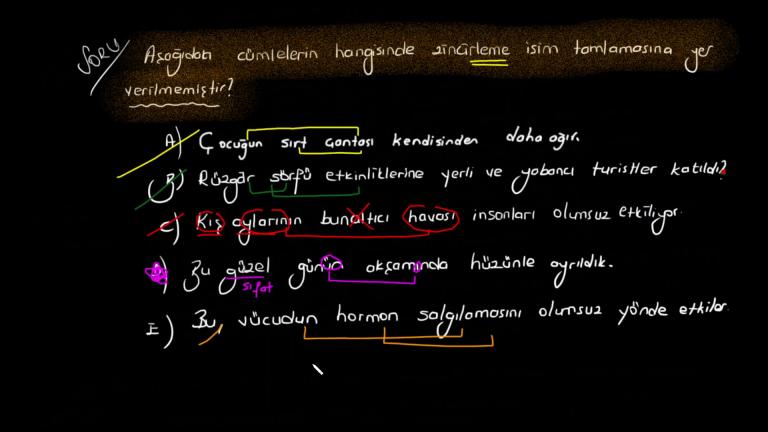 SORU
Aşağıdaki cümlelerin hangisinde zincirleme isim tamlamasına yer
verilmemiştir?
A) Çocuğun sırt çantası kendisinden daha ağır.
B) Rüzgâr sörfü etkinliklerine yerli ve yabancı turistler katıldı?
C) Kış aylarının bunaltıcı havası insanları olumsuz etkiliyor.
D) Bu güzel günün akşamında hüzünle ayrıldık.
sıfat
E) Bu, vücudun hormon salgılamasını olumsuz yönde etkiler.